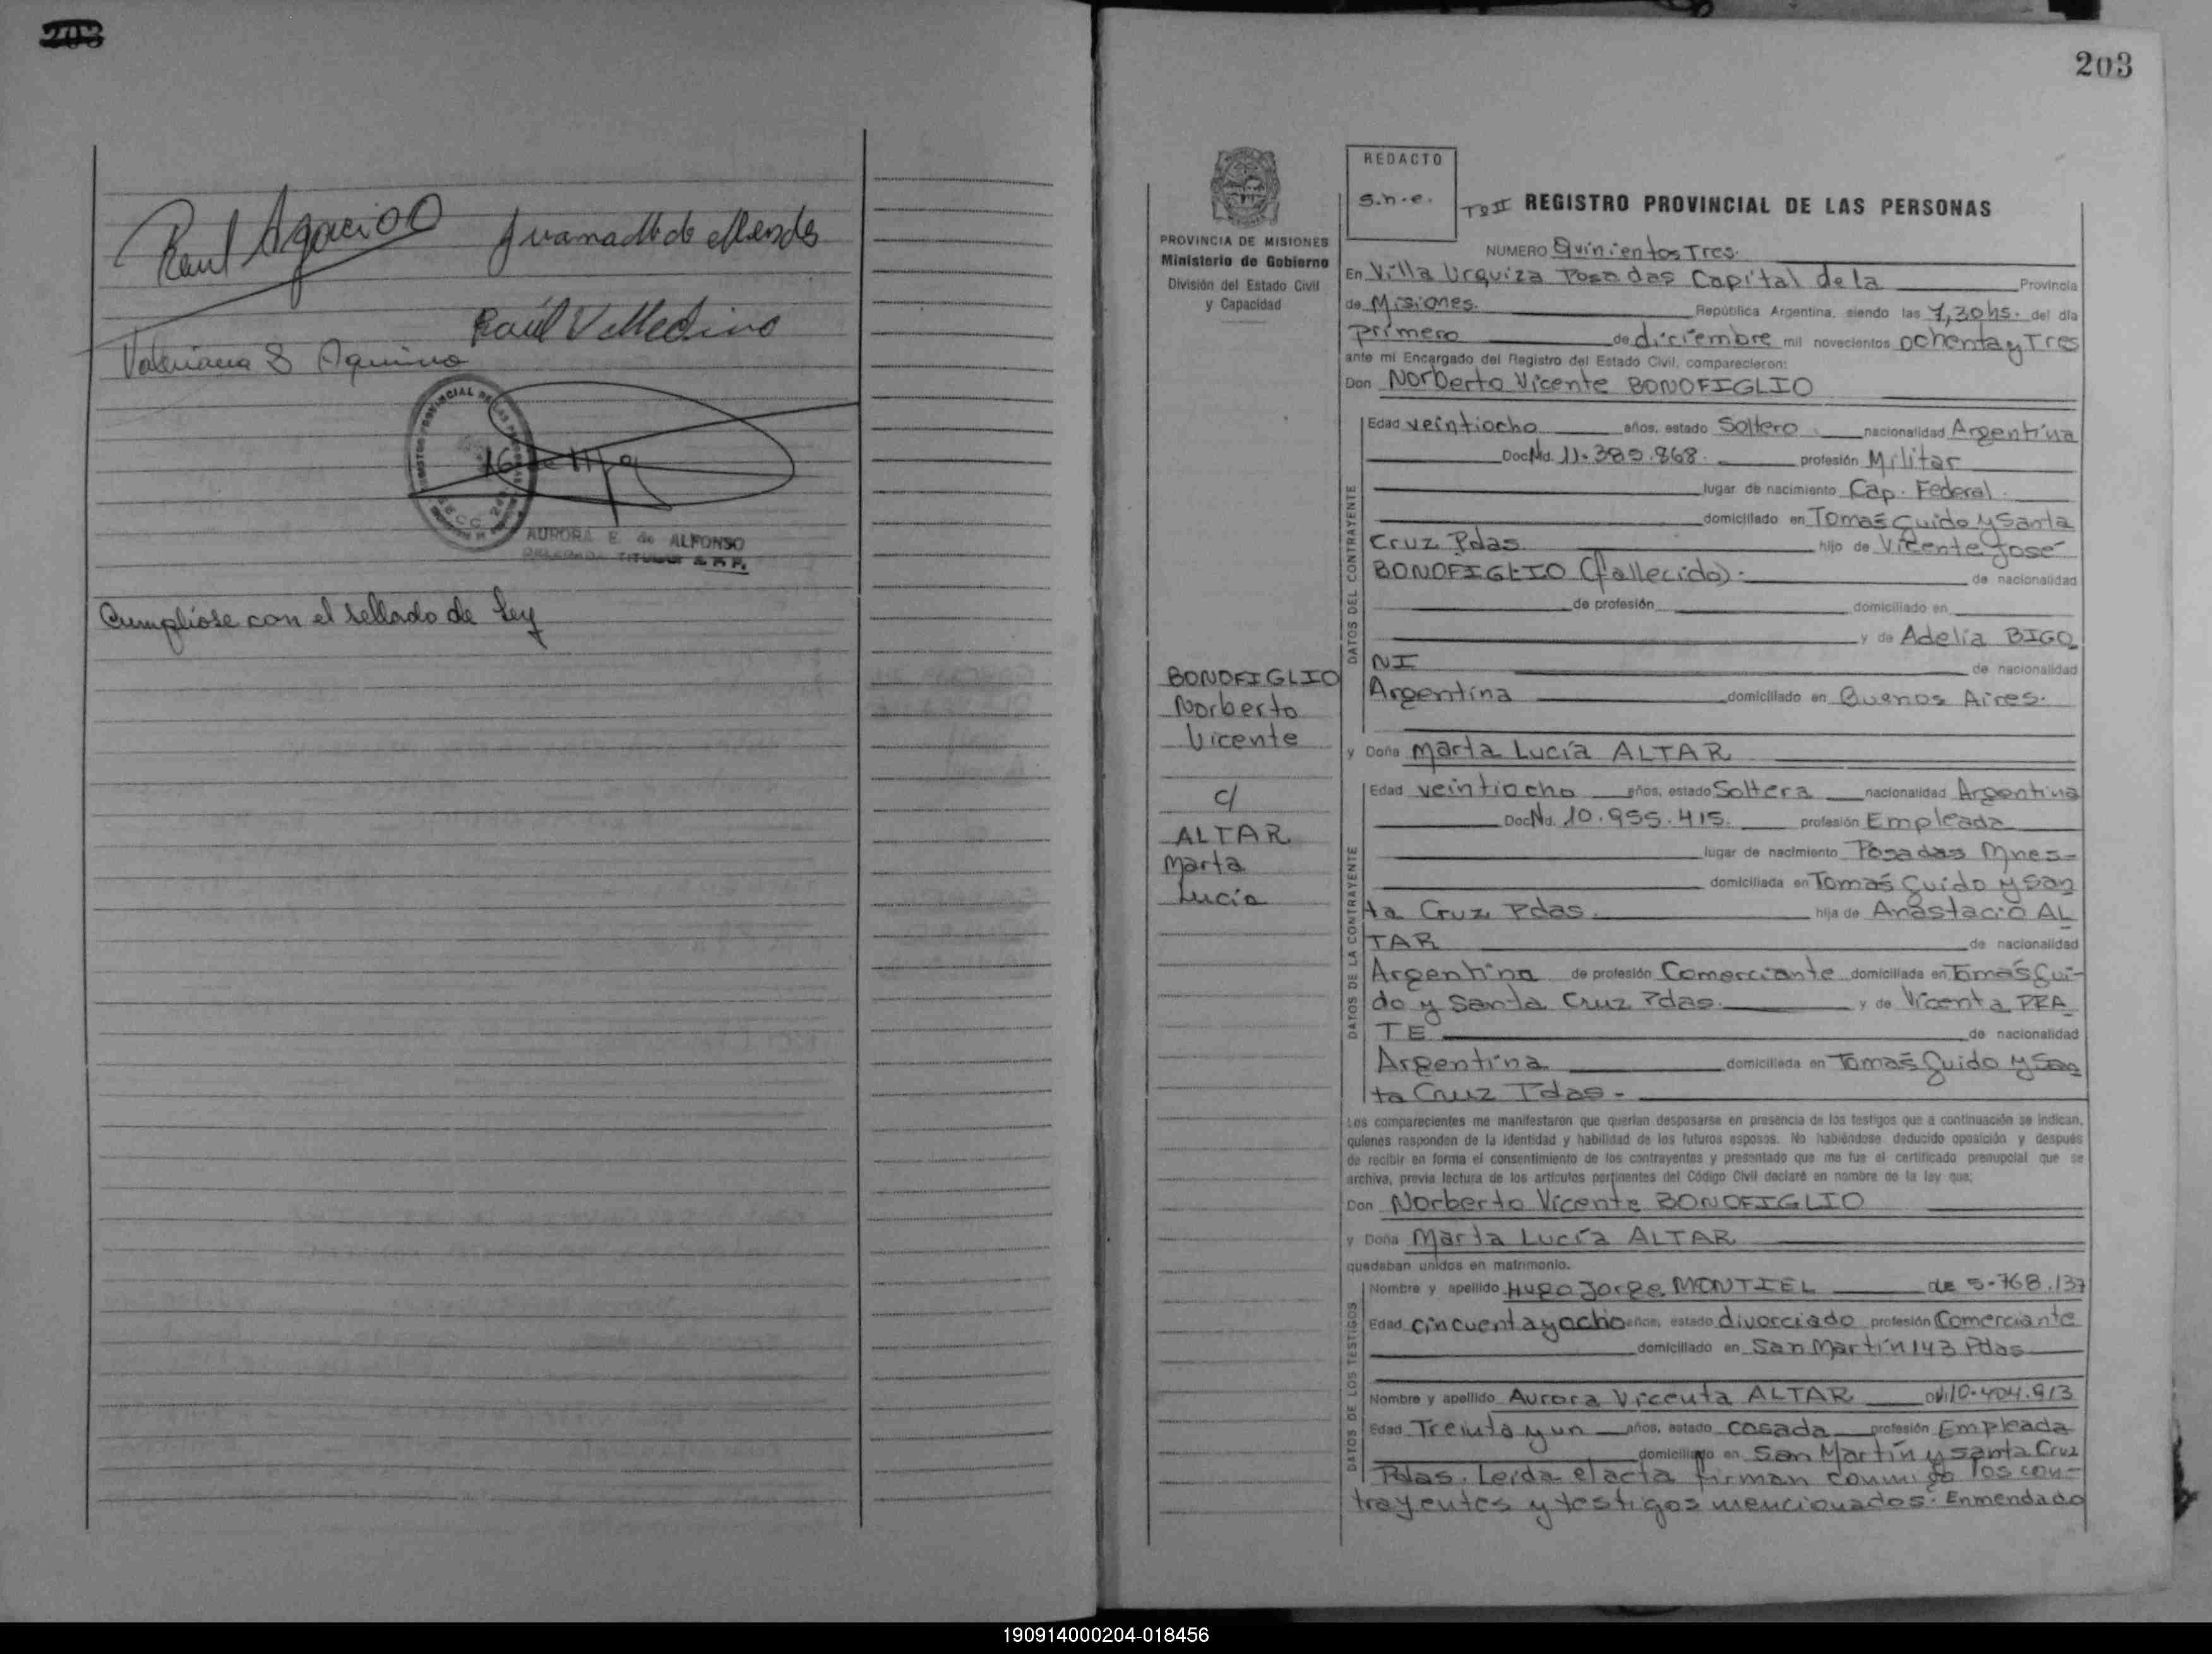 203
Raul Agacino
Juana M de Mendes
Raúl V. Medino
Valeriana S Aquino
AURORA E. de ALFONSO
DELEGADA TITULAR
Cumplióse con el sellado de Ley
203
PROVINCIA DE MISIONES
Ministerio de Gobierno
División del Estado Civil
y Capacidad
BONOFIGLIO
Norberto
Vicente
c/
ALTAR
Marta
Lucía
REDACTO
s.n.e.
Tº II REGISTRO PROVINCIAL DE LAS PERSONAS
NUMERO Quinientos Tres.
En Villa Urquiza Posadas Capital de la Provincia
de Misiones. República Argentina, siendo las 7,30 hs. del día
primero de diciembre mil novecientos ochenta y Tres
ante mi Encargado del Registro del Estado Civil, comparecieron:
Don Norberto Vicente BONOFIGLIO
DATOS DEL CONTRAYENTE
Edad veintiocho años, estado Soltero nacionalidad Argentina
Doc. Nd. 11.389.868. profesión Militar
lugar de nacimiento Cap. Federal.
domiciliado en Tomás Guido y Santa
Cruz Pdas. hijo de Vicente José
BONOFIGLIO (fallecido). de nacionalidad
de profesión domiciliado en
y de Adelia BIGO
NI de nacionalidad
Argentina domiciliado en Buenos Aires.
y Doña Marta Lucía ALTAR
DATOS DE LA CONTRAYENTE
Edad veintiocho años, estado Soltera nacionalidad Argentina
Doc. Nd. 10.955.415. profesión Empleada
lugar de nacimiento Posadas Mnes-
domiciliada en Tomás Guido y San
ta Cruz Pdas. hija de Anastacio AL
TAR de nacionalidad
Argentina de profesión Comerciante domiciliada en Tomás Gui-
do y Santa Cruz Pdas. y de Vicenta PRA
TE de nacionalidad
Argentina domiciliada en Tomás Guido y San
ta Cruz Pdas.-
Los comparecientes me manifestaron que querían desposarse en presencia de los testigos que a continuación se indican,
quienes responden de la identidad y habilidad de los futuros esposos. No habiéndose deducido oposición y después
de recibir en forma el consentimiento de los contrayentes y presentado que me fue el certificado prenupcial que se
archiva, previa lectura de los artículos pertinentes del Código Civil declaré en nombre de la ley que:
Don Norberto Vicente BONOFIGLIO
y Doña Marta Lucía ALTAR
quedaban unidos en matrimonio.
DATOS DE LOS TESTIGOS
Nombre y apellido Hugo Jorge MONTIEL LE 5.768.137
Edad cincuenta y ocho años, estado divorciado profesión Comerciante
domiciliado en San Martín 143 Pdas
Nombre y apellido Aurora Vicenta ALTAR 10.404.913
Edad Treinta y un años, estado casada profesión Empleada
domiciliado en San Martín y Santa Cruz
Pdas. Leída el acta firman conmigo los con-
trayentes y testigos mencionados. Enmendado
190914000204-018456